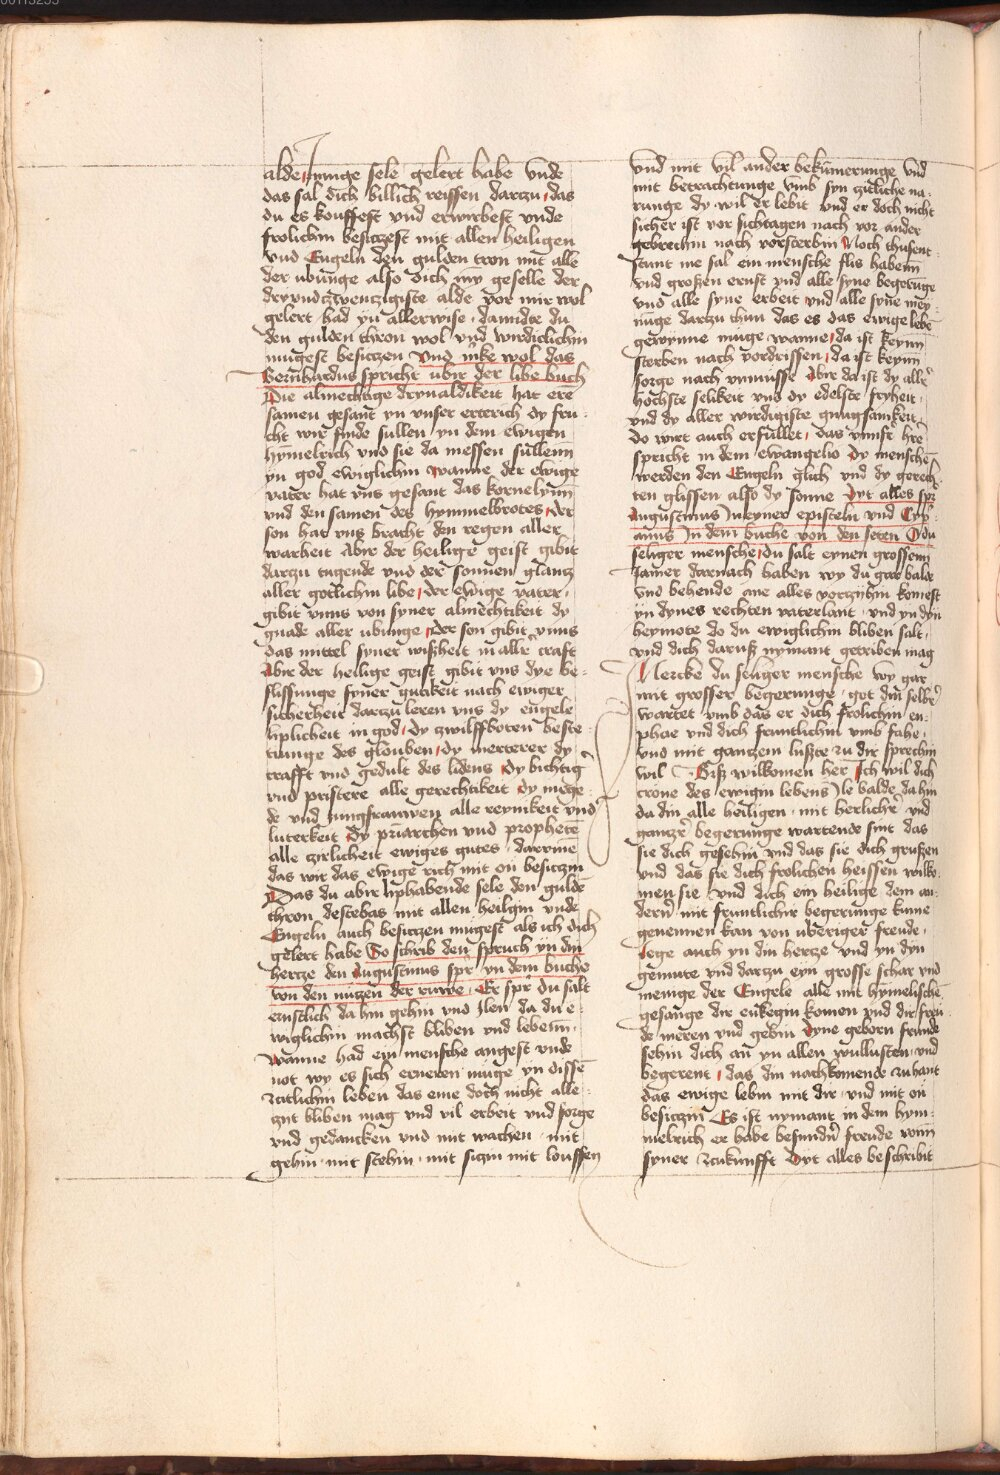 alde mynnige sele gelert habe vnde
das sal dich billich reissen darzu das
du es kouffest vnd erwirbest vnde
frolichin besitzest mit allen heiligen
vnd Engeln den gulden tron mit alle
der ubunge also dich myn geselle der
dryvndzwentzigiste alde vor mir wol
gelert had yn allerwise damitte du
den gulden thron wol vnd wirdiclichin
mugest besitzen Vnd mke wol das
Bernhardus spricht ubir der libe buch
Die almechtige dryualdikeit hat ere
samen gesant yn vnser ertterich dy fru
cht wir finde sullen yn dem ewigen
hymelrich vnd sie da messen sullenn
yn god ewiglichin wanne der ewige
vater hat vns gesant das kornelynn
vnd den samen des hymmelbrotes der
son hat vns bracht den regen aller
warheit Abir der heilige geist gibit
darzu tugende vnd der sonnen glantz
aller gotlichin libe der ewige vater
gibit vnns von syner almechtikeit dy
gnade aller ubunge der son gibit vnns
das mittel syner wißheit in aller craft
Abir der heilige geist gibit vns dye be
flissunge syner gutikeit nach ewiger
sicherheit darzu leren vns dy engele
liplicheit in god dy zwilffboten beste
tunge des glouben dy merterer dy
crafft vnd gedult des lidens dy bichtig
vnd pristere alle gerechtikeit dy mege
de vnd jungfrauwen alle reynikeit vnd
luterkeit dy priarchen vnd prophete
alle zirlicheit ewiges gutes darvme
das wir das ewige rich mit on besitzin
Das du abir liphabende sele den gulde
thron destebas mit allen heilgin vnde
Engeln auch besitzen mugest als ich dich
gelert habe So schrib den spruch yn din
hertze den Augustinus spr yn dem buche
von den nutzen der ruwe Er spr du salt
ernstlich da hin gehin vnd ylen da du e
wiglichin machst bliben vnd lebenn
wanne had ein mensche angest vnde
not wy es sich erneren muge yn disse
zcitlichin leben das eme doch nicht alle
zyt bliben mag vnd vil erbeit vnd sorge
vnd gedancken vnd mit wachen mit
gehin mit stehin mit sitzin mit louffen
vnd mit vil ander bekumerunge vnd
mit betrachtunge vmb syn zitliche na
runge dy wil er lebit vnd er doch nicht
sicher ist vor sichtagen nach vor ander
gebrechin nach vorsterbin Noch thusent
stunt me sal ein mensche flis habenn
vnd großen ernst vnd alle syne begerunge
vnd alle syne erbeit vnd alle syne mey
nunge darzu thun das es das ewige lebe
gewynne muge wanne da ist keynn
sterben nach vordrissen da ist keynn
sorge nach vnmusse Abir da ist dy aller
hochste selikeit vnd dy edelste fryheit
vnd dy aller wirdigiste gnugsamkeit
do wirt auch erfullet das vnser here
spricht in dem ewangelio dy mensche
werden den Engeln glich vnd dy gerech
ten glissen also dy sonne Dyt alles spr
Augustinus in eyner episteln vnd Cipri
anus in dem buche von den seten O du
seliger mensche du salt eynen grossenn
Jamer darnach haben wy du gar balde
vnd behende ane alles vorzyhin komest
yn dynes rechten vaterlant vnd yn dyn
heymote do du ewiglichin bliben salt
vnd dich daruß nymant getriben mag
Mercke du seliger mensche wy gar
mit grosser begerunge got din selbr
wartet vmb das er dich frolichin en
phae vnd dich fruntlichin vmb fahe
vnd mit gantzem luste zu dir sprechin
wil Biß wilkomen her Ich wil dich
crone des ewigin lebens Ile balde dahin
da din alle heiligen mit herlicher vnd
gantzer begerunge wartende sint das
sie dich gesehin vnd das sie dich grußen
vnd das sie dich frolichen heissen wilko
men sie vnd dich ein heilige dem an
dern mit fruntlichir begerunge kume
genemen kan von ubriger freude
lege auch yn din hertze vnd yn dyn
gemute vnd darzu eyn grosse schar vnd
menige der Engele alle mit hymelische
gesange dir enkegin komen vnd dir freu
de meren vnd gebin Dyne geborn frunde
sehin dich an yn allen wullusten vnd
begerent das din nachkomende zu hant
das ewige lebin mit dir vnd mit on
besitzin Es ist nymant in dem hym
melrich er habe besundern freude vonn
syner zcukunfft Dyt alles beschribit